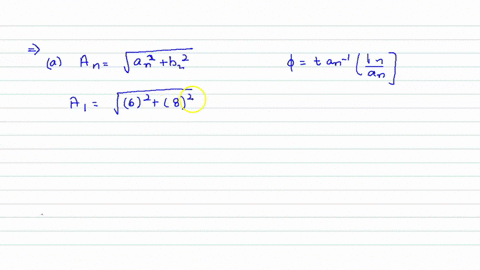 ⇒ (a) Aₙ = √(aₙ² + bₙ²) ϕ = tan⁻¹ (bₙ/aₙ]
A₁ = √((6)² + (8)²)